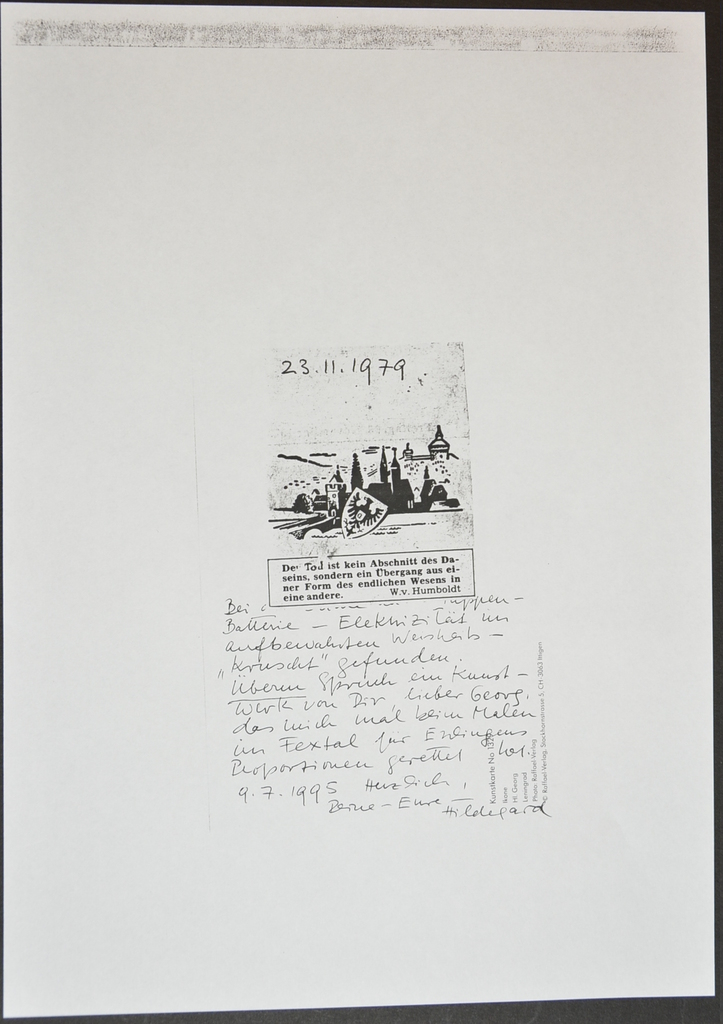 23.11.1979
Der Tod ist kein Abschnitt des Da-
seins, sondern ein Übergang aus ei-
ner Form des endlichen Wesens in
eine andere. W.v. Humboldt
Bei
Batterie – Elektrizität im
aufbewahrten Weisheits –
"Kruscht" gefunden.
Überm Spruch ein Kunst –
Werk von Dir lieber Georg,
das mich mal beim Malen
im Festsaal für Esslingens
Proportionen gerettet hat.
9.7.1995 Herzlich,
Deine – Eure –
Hildegard
Kunstkarte No 132
Ikone
Hl. Georg
Leningrad
Photo: Raffael-Verlag
© Raffael-Verlag, Stockhornstrasse 5, CH-3063 Ittigen